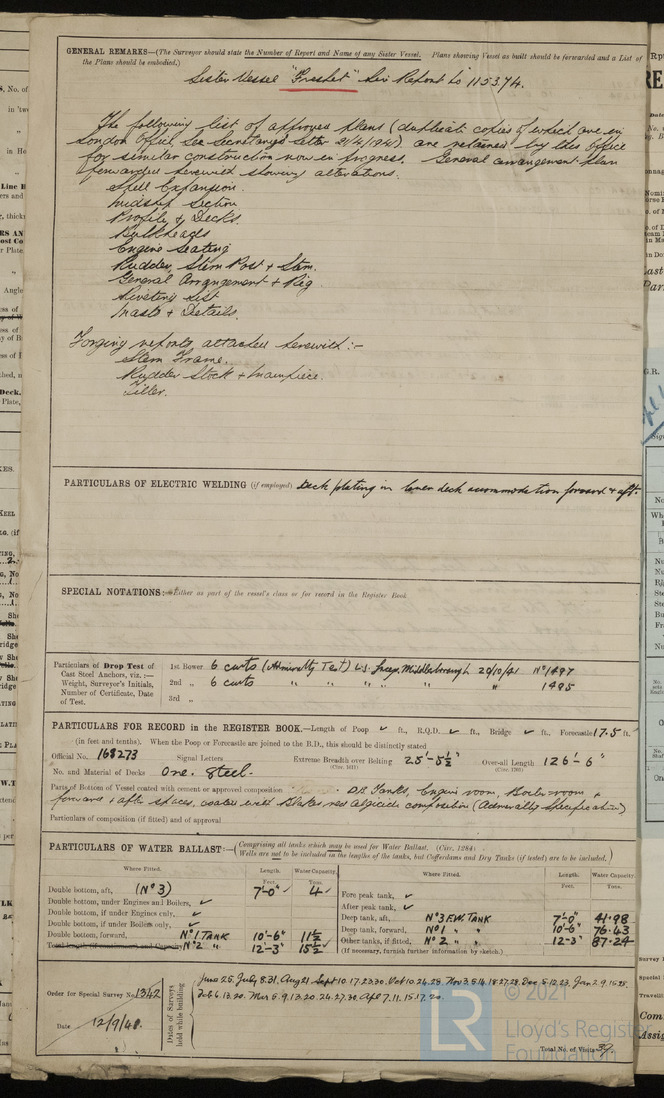 GENERAL REMARKS—(The Surveyor should state the Number of Report and Name of any Sister Vessel. Plans showing Vessel as built should be forwarded and a List of
the Plans should be embodied.)
Sister Vessel "Freshet" Report No 115374.
The following list of approved plans (duplicate copies of which are in
London Office, see Secretary's letter 2/4/1941) are retained by this Office
for similar construction now in progress. General arrangement plan
forwarded herewith showing alterations.
Shell Expansion.
Midship Section
Profile & Decks.
Bulkheads
Engine Seating
Rudder, Stern Post & Stem.
General Arrangement & Rig
Riveting List
Masts & Details.
Forging reports attached herewith:-
Stern Frame.
Rudder Stock & Mainpiece.
Tiller.
PARTICULARS OF ELECTRIC WELDING (if employed) Deck plating in lower deck accommodation forward & aft.
SPECIAL NOTATIONS:— Either as part of the vessel's class or for record in the Register Book
Particulars of Drop Test of
Cast Steel Anchors, viz.:—
Weight, Surveyor's Initials,
Number of Certificate, Date
of Test.
1st Bower 6 cwts (Admiralty Test) Middlesborough 20/10/41 No 1497
2nd „ 6 cwts „ „ „ „ „ „ 1495
3rd „
PARTICULARS FOR RECORD in the REGISTER BOOK.—Length of Poop ✓ ft., R.Q.D. ✓ ft., Bridge ✓ ft., Forecastle 17.5 ft.
(in feet and tenths). When the Poop or Forecastle are joined to the B.D., this should be distinctly stated
Official No. 168273 Signal Letters Extreme Breadth over Belting 25'-5½" Over-all Length 126'-6"
(Circ. 1611) (Circ. 1703)
No. and Material of Decks One. Steel.
Parts of Bottom of Vessel coated with cement or approved composition D.B. Tanks, Engine room, Boiler room &
forward & after spaces, coated with Algicide composition (Admiralty Specification)
Particulars of composition (if fitted) and of approval
PARTICULARS OF WATER BALLAST:—(Comprising all tanks which may be used for Water Ballast. (Circ. 1284)
Wells are not to be included in the lengths of the tanks, but Cofferdams and Dry Tanks (if tested) are to be included.)
Where Fitted. Length. Water Capacity. Where Fitted. Length. Water Capacity.
Feet. Tons. Feet. Tons.
Double bottom, aft, (No 3) 7'-0" ✓ 4 ✓
Double bottom, under Engines and Boilers, ✓
Double bottom, if under Engines only, ✓
Double bottom, if under Boilers only, ✓
Double bottom, forward, No 1 TANK 10'-6" 11½
Total length (if continuous) and Capacity No 2 „ 12'-3" 15½ ✓
Fore peak tank, ✓
After peak tank, ✓
Deep tank, aft, No 3 F.W. TANK 7'-0" 41.98
Deep tank, forward, No 1 „ „ 10'-6" 76.43
Other tanks, if fitted, No 2 „ „ 12-3" 87.24
(If necessary, furnish further information by sketch.)
Order for Special Survey No. 1342
Date 12/9/40.
Dates of Survey held while building
June 25. July 8.31. Aug 21 Sept 10.17.23.30. Oct 10.24.28. Nov 3.5.14.18.27.28. Dec 5.12.23. Jan 2.9.15.28.
Feb 6.13.20. Mar 5.9.13.20.24.27.30. Apl 7.11.15.17.20.
Total No. of Visits 39.
© 2021
LR
Lloyd's Register
Foundation